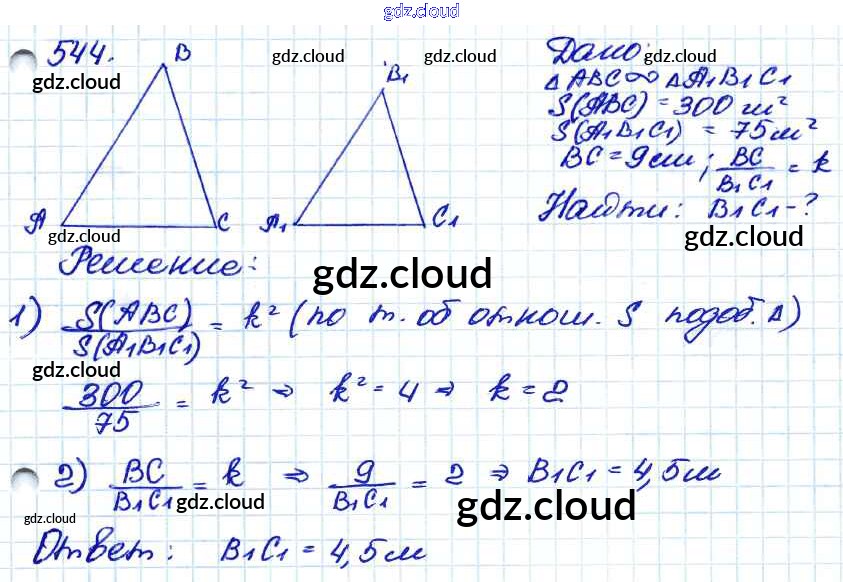 gdz.cloud
544.
B
gdz.cloud
gdz.cloud
B₁
A
C
A₁
C₁
gdz.cloud
Дано:
gdz.cloud
△ABC∞△A₁B₁C₁
S(ABC) = 300 м²
S(A₁B₁C₁) = 75м²
BC = 9см ; BC/B₁C₁ = k
Найти: B₁C₁ - ?
gdz.cloud
Решение:
gdz.cloud
1) S(ABC)/S(A₁B₁C₁) = k² (по т. об отнош. S подоб. △)
gdz.cloud
300/75 = k² ⇒ k² = 4 ⇒ k = 2
2) BC/B₁C₁ = k ⇒ 9/B₁C₁ = 2 ⇒ B₁C₁ = 4,5м
gdz.cloud
gdz.cloud
gdz.cloud
Ответ: B₁C₁ = 4,5м